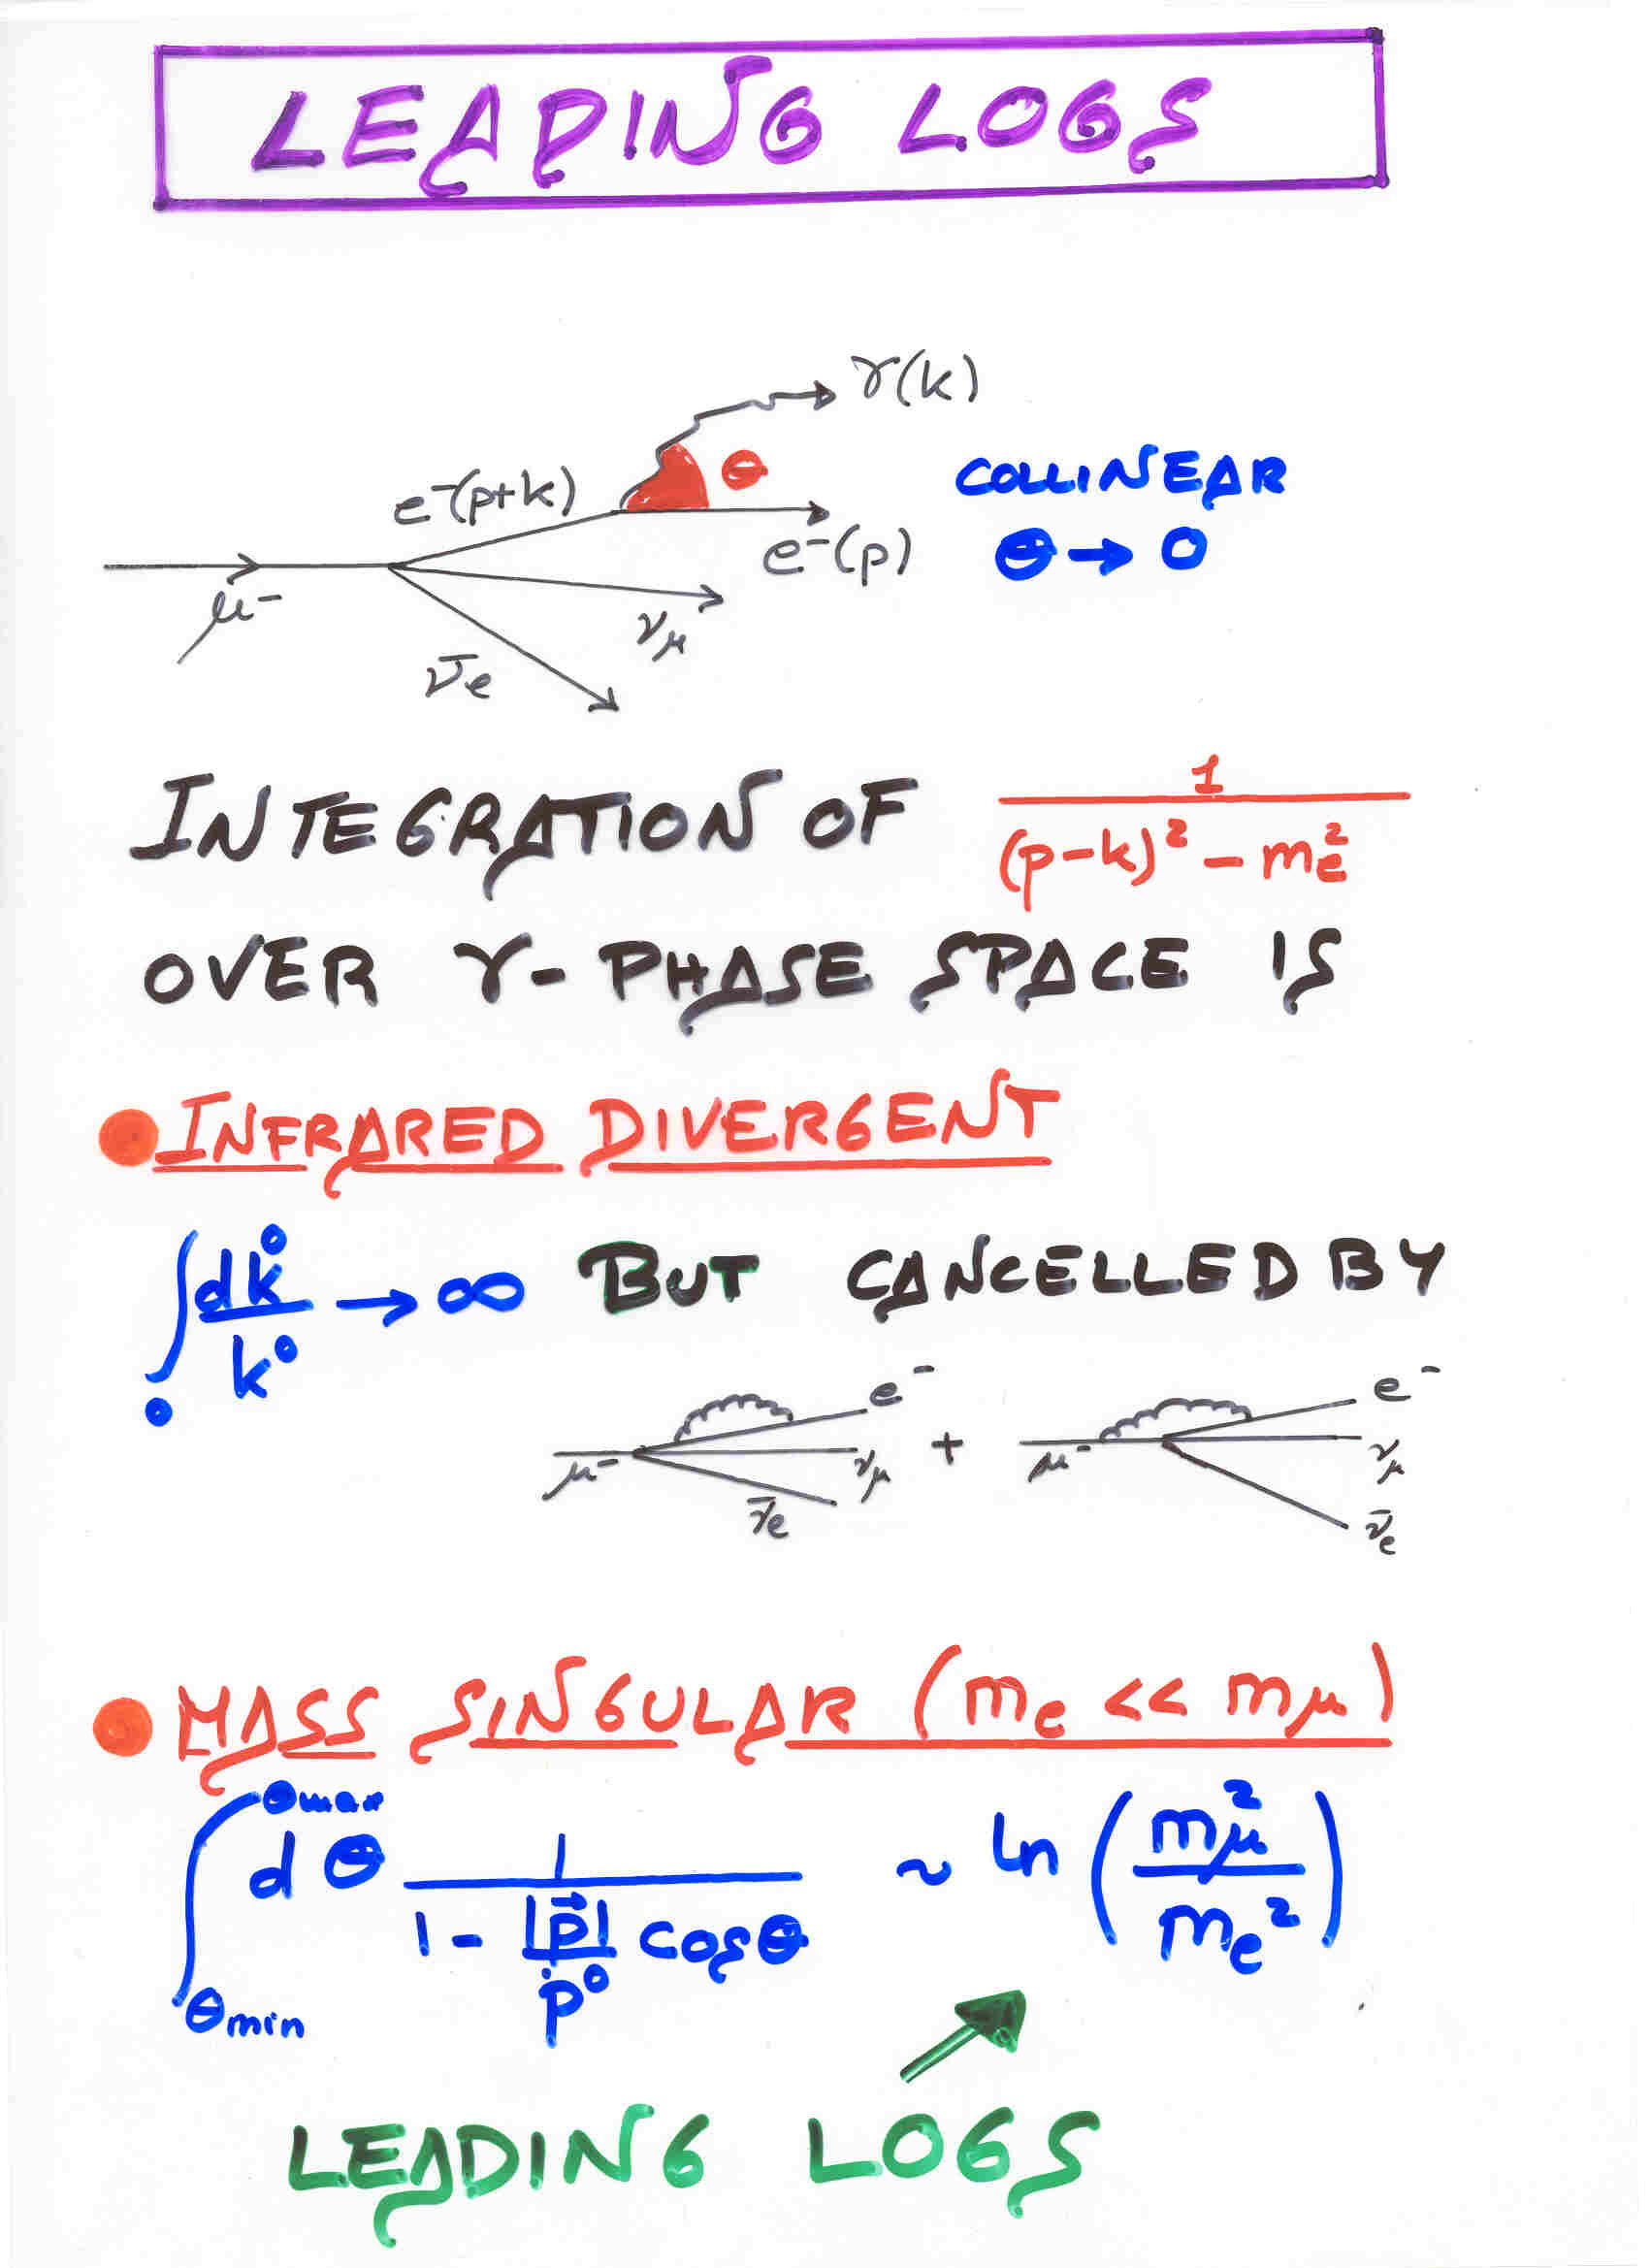 LEADING LOGS
γ(k)
e⁻(p+k)
θ
COLLINEAR
θ → 0
e⁻(p)
μ⁻
ν_μ
ν̄_e
INTEGRATION OF 1/((p-k)² - m_e²)
OVER γ- PHASE SPACE IS
INFRARED DIVERGENT
∫₀ dk⁰/k⁰ → ∞ BUT CANCELLED BY
e⁻
e⁻
μ⁻
ν_μ
+
μ⁻
ν_μ
ν̄_e
ν̄_e
MASS SINGULAR (m_e << m_μ)
∫_{θmin}^{θmax} dθ 1/(1 - |p⃗|/p⁰ cosθ) ~ ln (m_μ²/m_e²)
LEADING LOGS